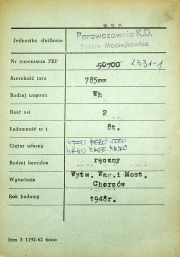 D.K.P.
Jednostka służbowa
Parowozownia K.D.
Bytom Maciejkowice
Nr inwentarza PKP 50700 2331-1
Szerokość toru 785mm
Rodzaj wagonu Wh
Ilość osi 2
Ładowność w t 8t.
Ciężar własny
Rodzaj hamulca ręczny
Wytwórnia Wytw. Wag. i Most.
Chorzów
Rok budowy 1948r.